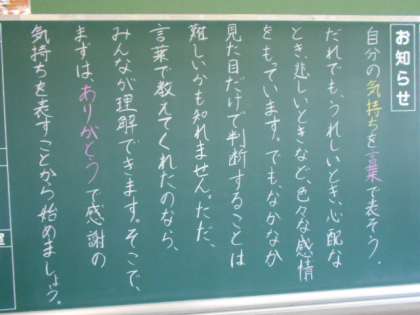 お知らせ
自分の気持ちを言葉で表そう。
だれでも、うれしいとき、心配な
とき、悲しいときなど、色々な感情
をもっています。でも、なかなか
見た目だけで判断することは
難しいかも知れません。ただ、
言葉で教えてくれたのなら、
みんなが理解できます。そこで、
まずは、ありがとうで感謝の
気持ちを表すことから始めましょう。